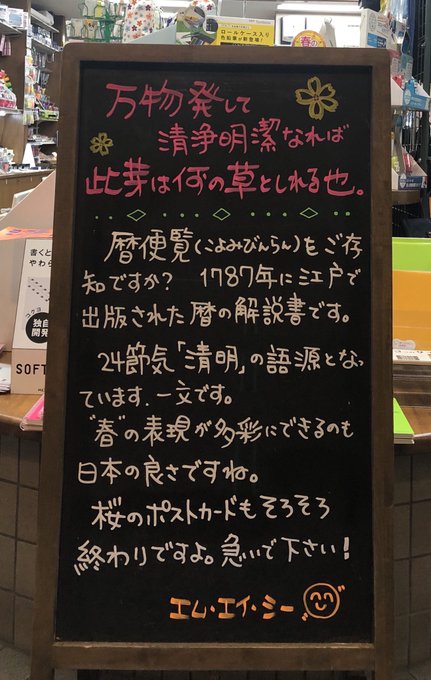 ロールケース入り
色鉛筆が新登場!
万物発して
清浄明潔なれば
此芽は何の草としれる也。
暦便覧(こよみびんらん)をご存
知ですか? 1787年に江戸で
出版された暦の解説書です。
24節気「清明」の語源となっ
ています.一文です。
"春"の表現が多彩にできるのも
日本の良さですね。
桜のポストカードもそろそろ
終わりですよ。急いで下さい!
エム・エイ・シー
書くと
やわら
独自
開発
SOFT